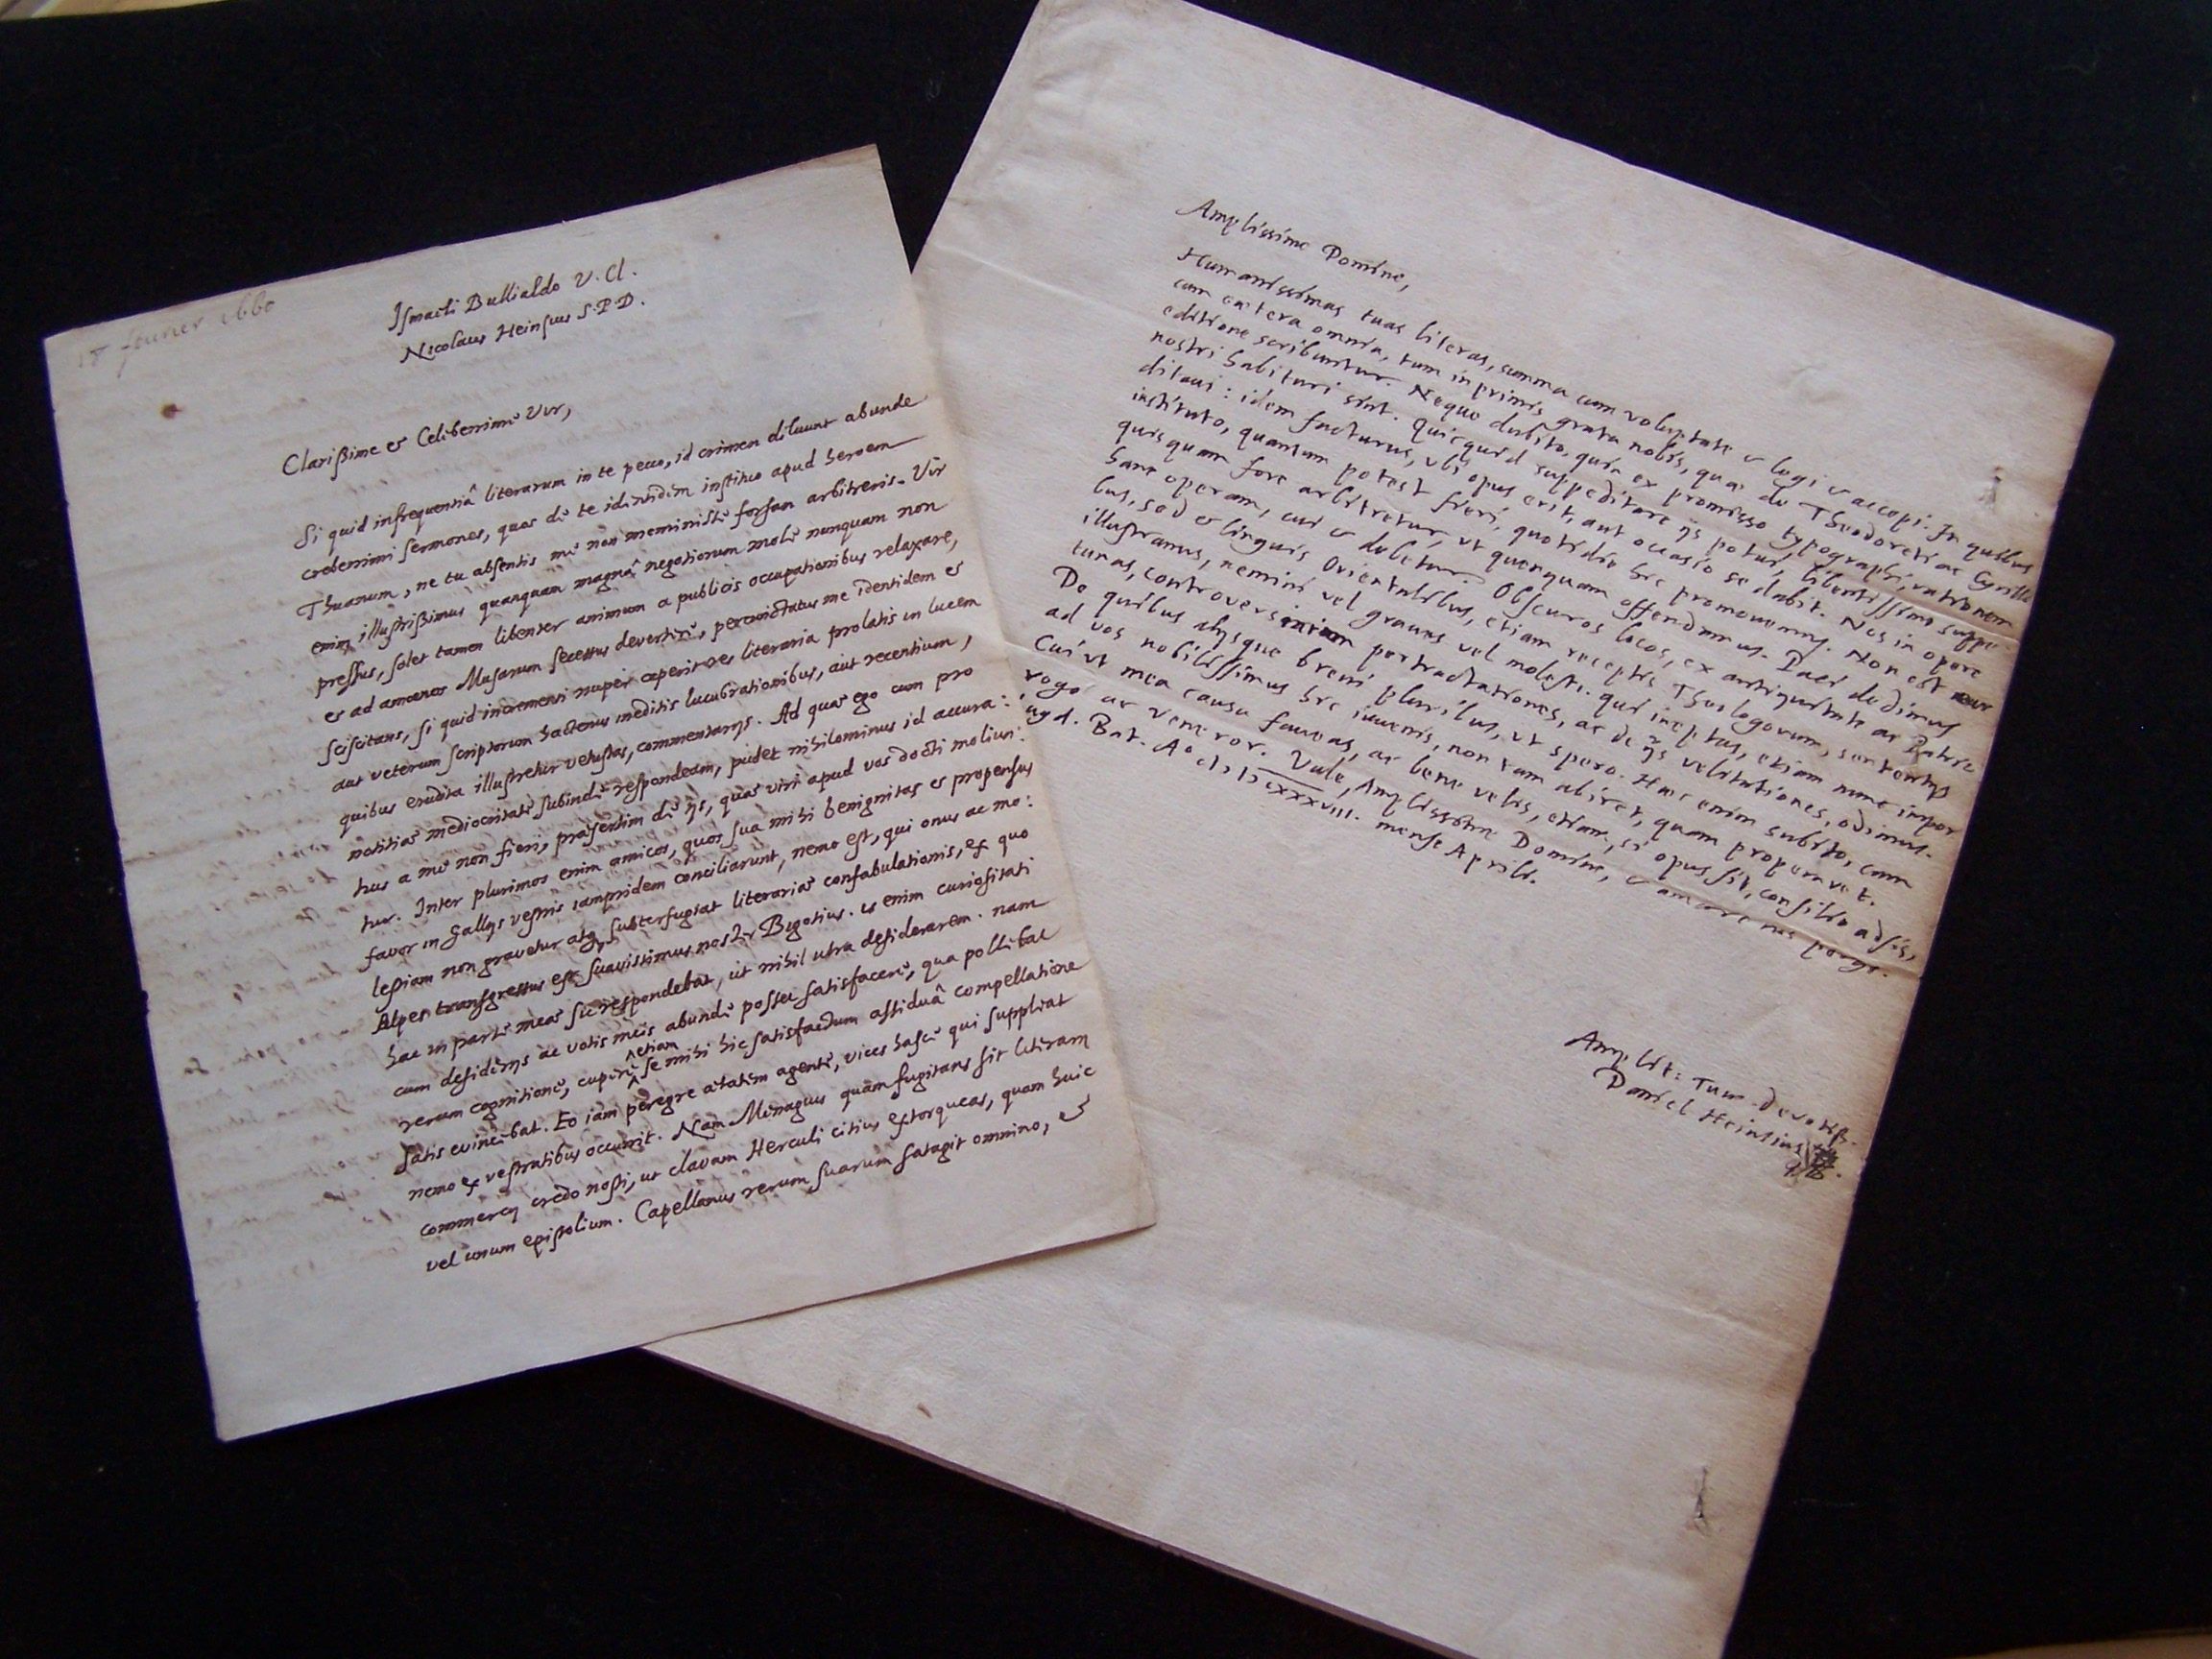 18 feurier 1660
Ismaeli Bullialdo V. Cl.
Nicolaus Heinsius S.P.D.
Clarißime et Celiberrime Vir,
Si quid infrequentiâ literarum in te pecco, id crimen diluunt abunde
creberrimi sermones, quos de te identidem instituo apud heroem
Thuanum, ne tu absentis me non meminisse forsan arbitreris. Vir
enim illustrißimus quanquam magnâ negotiorum mole nunquam non
pressus, solet tamen libenter animum a publicis occupationibus relaxare,
et ad amœnos Musarum secessus devertere, percunctatus me identidem et
sciscitans, si quid incrementi nuper ceperit res literaria prolatis in lucem
aut veterum scriptorum hactenus ineditis lucubrationibus, aut recentium,
quibus erudita illustretur vetustas, commentarijs. Ad quae ego cum pro
notitiae mediocritate subinde respondeam, pudet nihilominus id accura:
tius a me non fieri, praesertim de ijs, quae viri apud vos docti moliun:
tur. Inter plurimos enim amicos, quos sua mihi benignitas et propensus
favor in Gallijs vestris iampridem conciliarunt, nemo est, qui onus ac mo:
lestiam non gravetur atq subterfugiat literariae confabulationis, ex quo
Alpes transgressus est suavissimus noster Bigotius. is enim curiositati
hac in parte meae sic respondebat, ut nihil ultra desiderarem. nam
cum desiderijs ac votis meis abunde posset satisfacere, qua pollebat
rerum cognitione, cupere etiam se mihi hic satisfactum assiduâ compellatione
satis evincebat. Eo iam peregre aetatem agente, vices hasce qui suppleat
nemo ex vestratibus occurrit. Nam Menagius quam fugitans sit literarij
commercij credo nosti, ut clavam Herculi citius extorqueas, quam huic
vel unum epistolium. Capellanus rerum suarum satagit omnino, et
Amplissime Domine,
Humanissimas tuas literas, summa cum voluptate et legi et accepi. In quibus
cum cætera omnia, tum inprimis grata nobis, quae de Theodoreti ac Cyrilli
editione scribuntur. Neque dubito, quin ex promisso typographi, rationem
nostri habituri sint. Quicquid suppeditare ijs potui, libentissime suppe-
ditavi: idem facturus, ubi opus erit, aut occasio se dabit. Nos in opere
instituto, quantum potest fieri, quotidie hic promovemus. Non est
quisquam fore arbitretur, ut quenquam offendamus. Paci dedimus
hanc operam, cui et debetur. Obscuros locos, ex antiquitate ac Patri-
bus, sed et linguis Orientalibus, etiam receptis Theologorum, sententijs
illustramus, nemini vel graves vel molesti. qui ineptas, etiam nunc impor
tunas, controversiarum pertractationes, ac de ijs velitationes, odimus.
De quibus alijsque brevi pluribus, ut spero. Haec enim subito, cum
ad vos nobilissimus hic iuvenis, non tam abiret, quam properaret.
Cui ut mea causa faveas, ac bene velis, etiam, si opus sit, consilio adsis,
rogo ac veneror. Vale, Amplissime Domine, et amare nos perge.
Lugd. Bat. Ao cIɔ Iɔ cxxxviii. mense Aprili.
Amplit: Tuae devotiss.
Daniel Heinsius